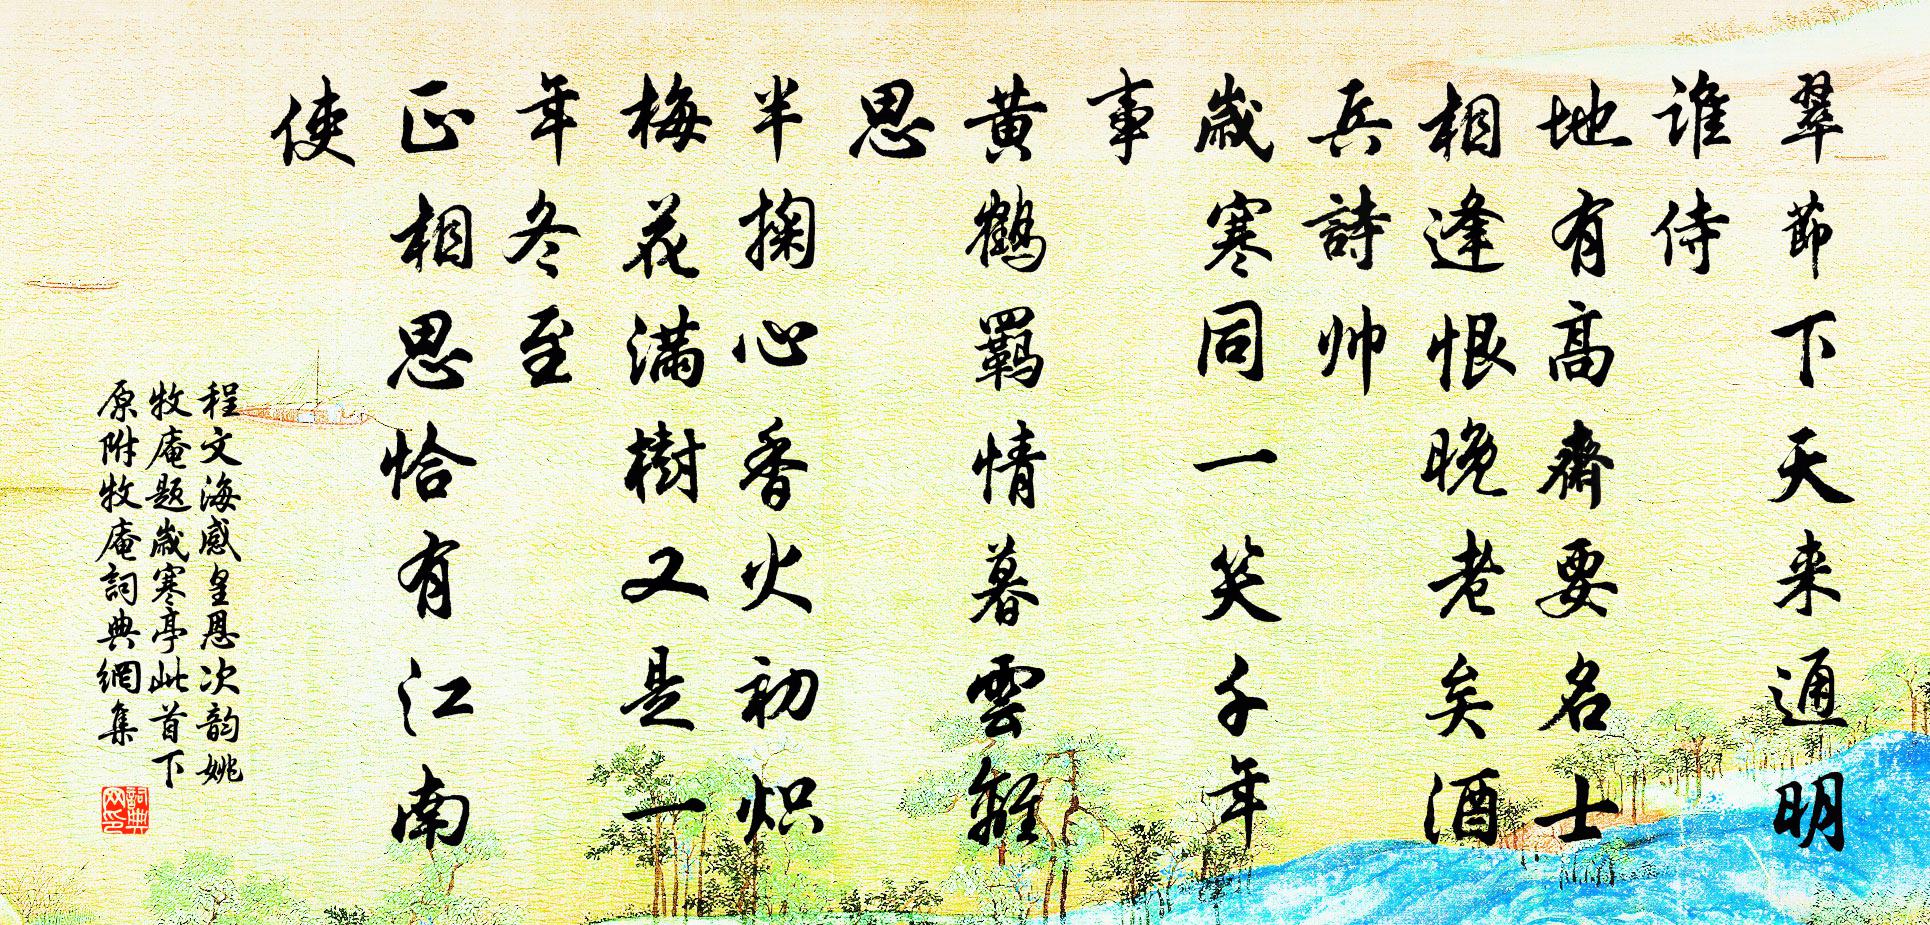 翠節下天来通明
誰侍
地有高齋要名士
相逢恨晚老矣酒
兵詩帅
歲寒同一笑千年
事
黄鶴羈情暮雲難
思
半掬心香火初炽
梅花满樹又是一
年冬至
正相思恰有江南
使
程文海感皇恩次韵姚
牧庵题歲寒亭此首下
原附牧庵詞典網集
詞典网印